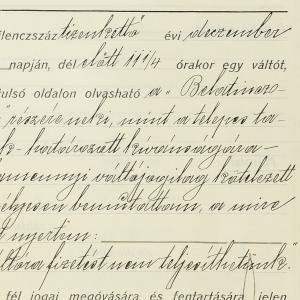 ilenczszáz tizenkettő" évi deczember
napján, dél előtt 11 1/4 órakor egy váltót,
tulsó oldalon olvasható a „Belatinczo-
" részére neki, mint a telepes ta-
k- határozott kivánságára -
amennyi váltójogilag kötelezett
élyesen bemutattam, a mire
nyertem:
váltóra fizetést nem teljesíthetünk."
fél jogai megóvására és fentartására jelen